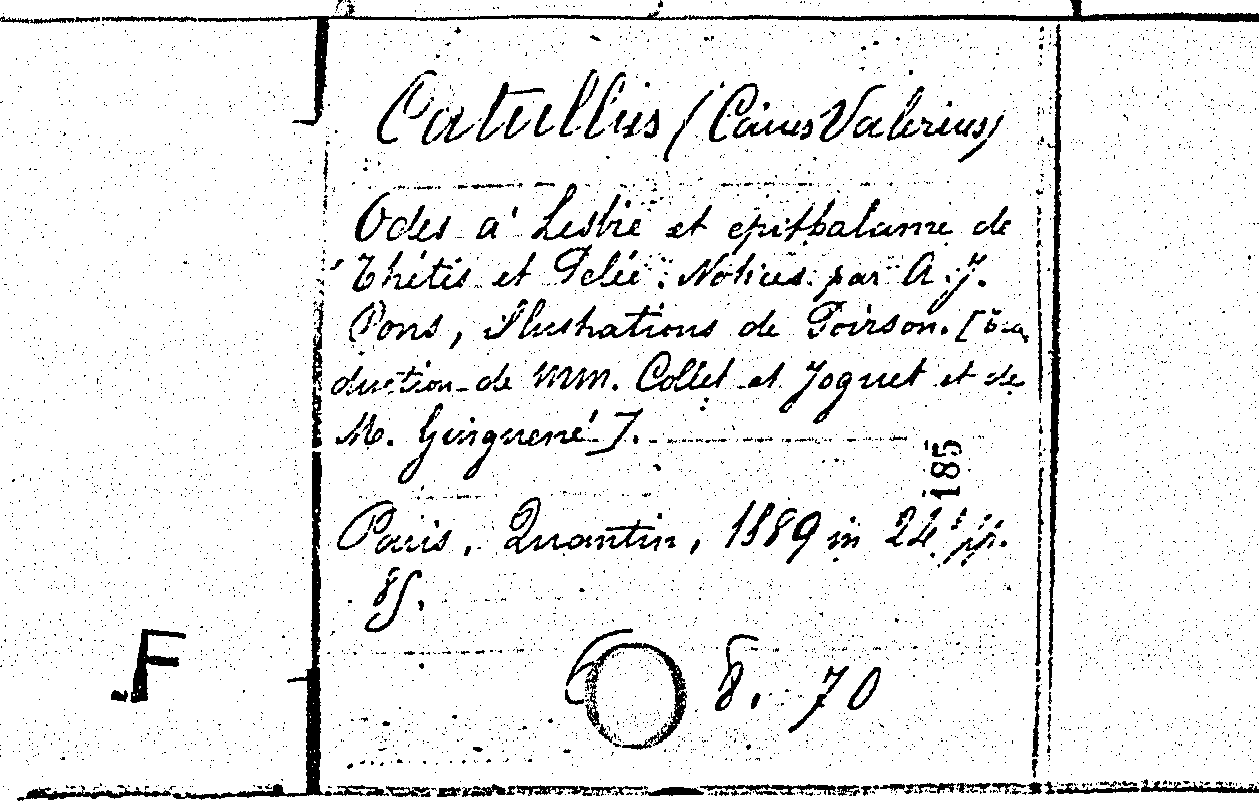 Catullus (Caius Valerius)
Odes à Lesbie et epithalame de
Thétis et Pelée. Notices par A. J.
Pons, Illustrations de Poirson. [Tra
duction de MM. Collet et Joguet et de
M. Guinguené].
185
Paris, Quantin, 1889 in 24, pp.
85.
F
8. 70